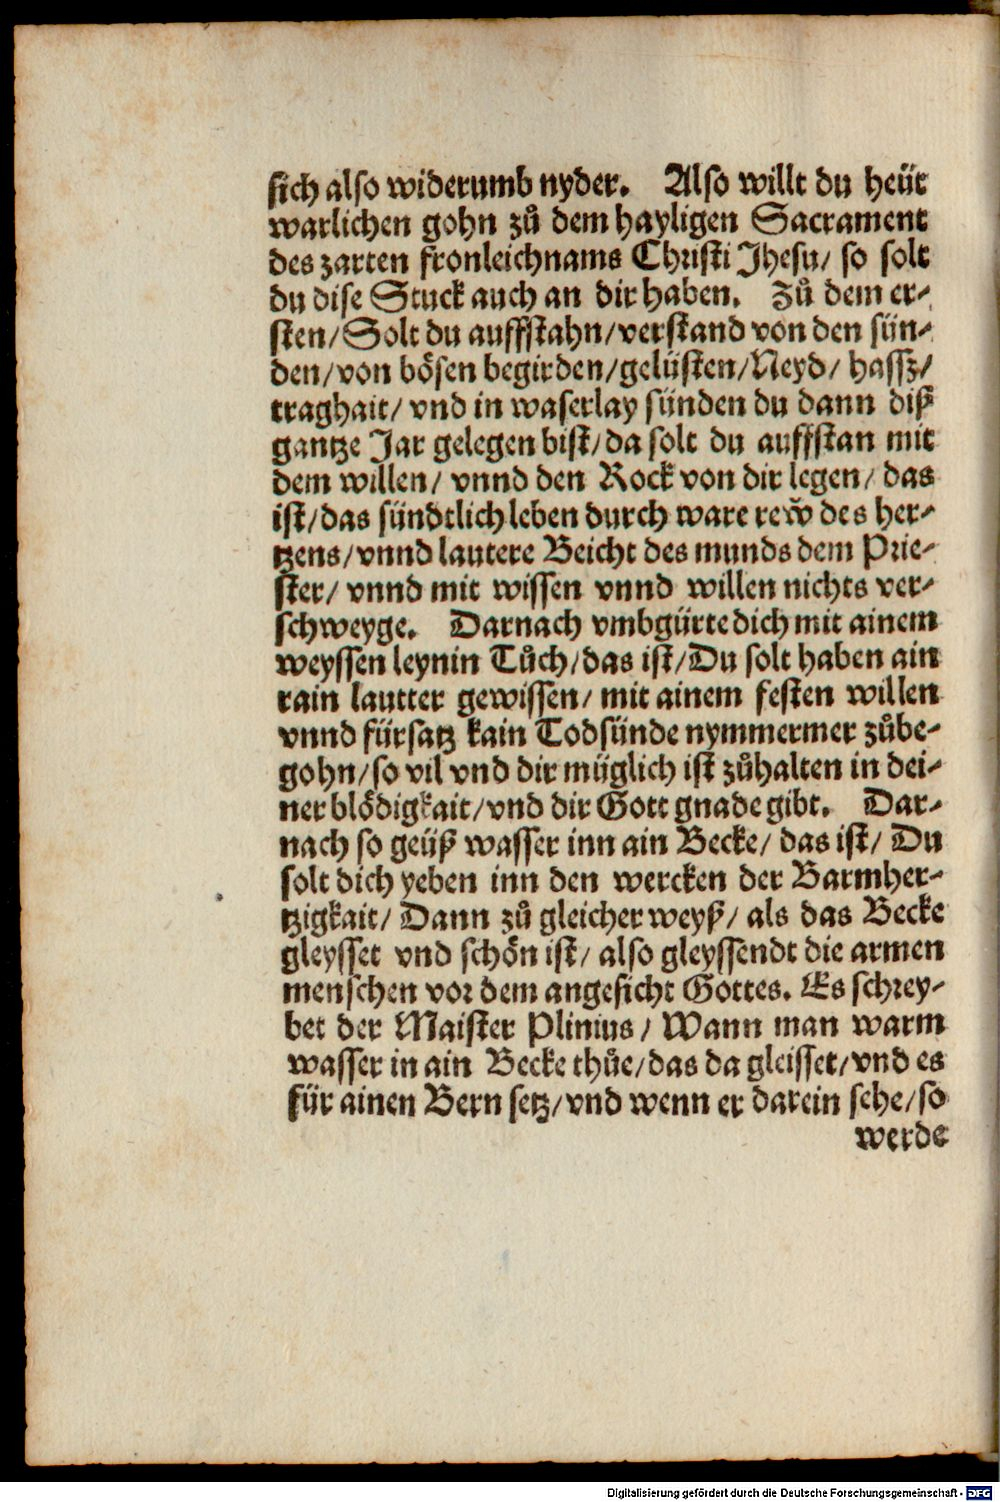 sich also widerumb nyder. Also willt du heüt
warlichen gohn zů dem hayligen Sacrament
des zarten fronleichnams Christi Jhesu/ so solt
du dise Stuck auch an dir haben. Zů dem er-
sten/Solt du auffstahn/verstand von den sün-
den/von bösen begirden/gelüsten/Neyd/ hassz/
traghait/ vnd in waserlay sünden du dann diß
gantze Jar gelegen bist/da solt du auffstan mit
dem willen/ vnnd den Rock von dir legen/ das
ist/das sündtlich leben durch ware rew̌ des her-
tzens/vnnd lautere Beicht des munds dem Prie-
ster/ vnnd mit wissen vnnd willen nichts ver-
schweyge. Darnach vmbgürte dich mit ainem
weyssen leynin Tůch/das ist/Du solt haben ain
rain lautter gewissen/ mit ainem festen willen
vnnd fürsatz kain Todsünde nymmermer zůbe-
gohn/so vil vnd dir müglich ist zůhalten in dei-
ner blödigkait/vnd dir Gott gnade gibt. Dar-
nach so geüß wasser inn ain Becke/ das ist/ Du
solt dich yeben inn den wercken der Barmher-
tzigkait/ Dann zů gleicher weyß/ als das Becke
gleysset vnd schön ist/ also gleyssendt die armen
menschen vor dem angesicht Gottes. Es schrey-
bet der Maister Plinius/ Wann man warm
wasser in ain Becke thůe/das da gleisset/vnd es
für ainen Bern setz/vnd wenn er darein sehe/so
werde
Digitalisierung gefördert durch die Deutsche Forschungsgemeinschaft - DFG